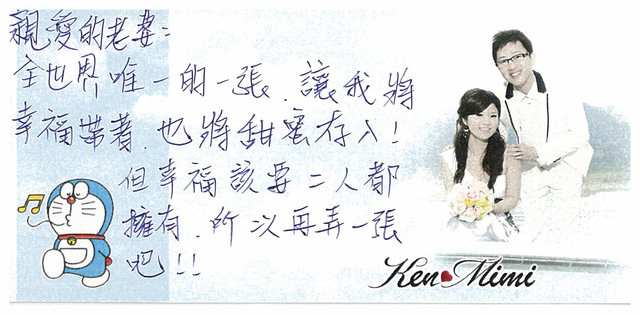 親愛的老婆：
全世界唯一的一張，讓我將
幸福帶著，也將甜蜜存入！
但幸福該要二人都
擁有，所以再弄一張
吧！！
Ken Mimi